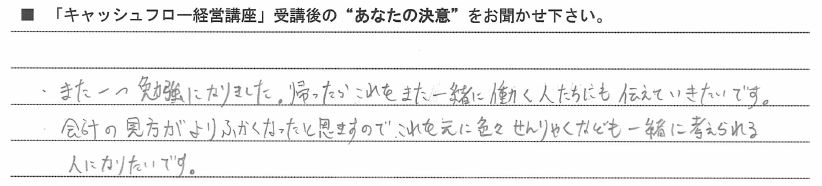 ■ 「キャッシュフロー経営講座」受講後の“あなたの決意”をお聞かせ下さい。
・また一つ勉強になりました。帰ったらこれをまた一緒に働く人たちにも伝えていきたいです。
・会計の見方がよりふかくなったと思ますのでこれを元に色々せんりゃくなども一緒に考えられる
人になりたいです。